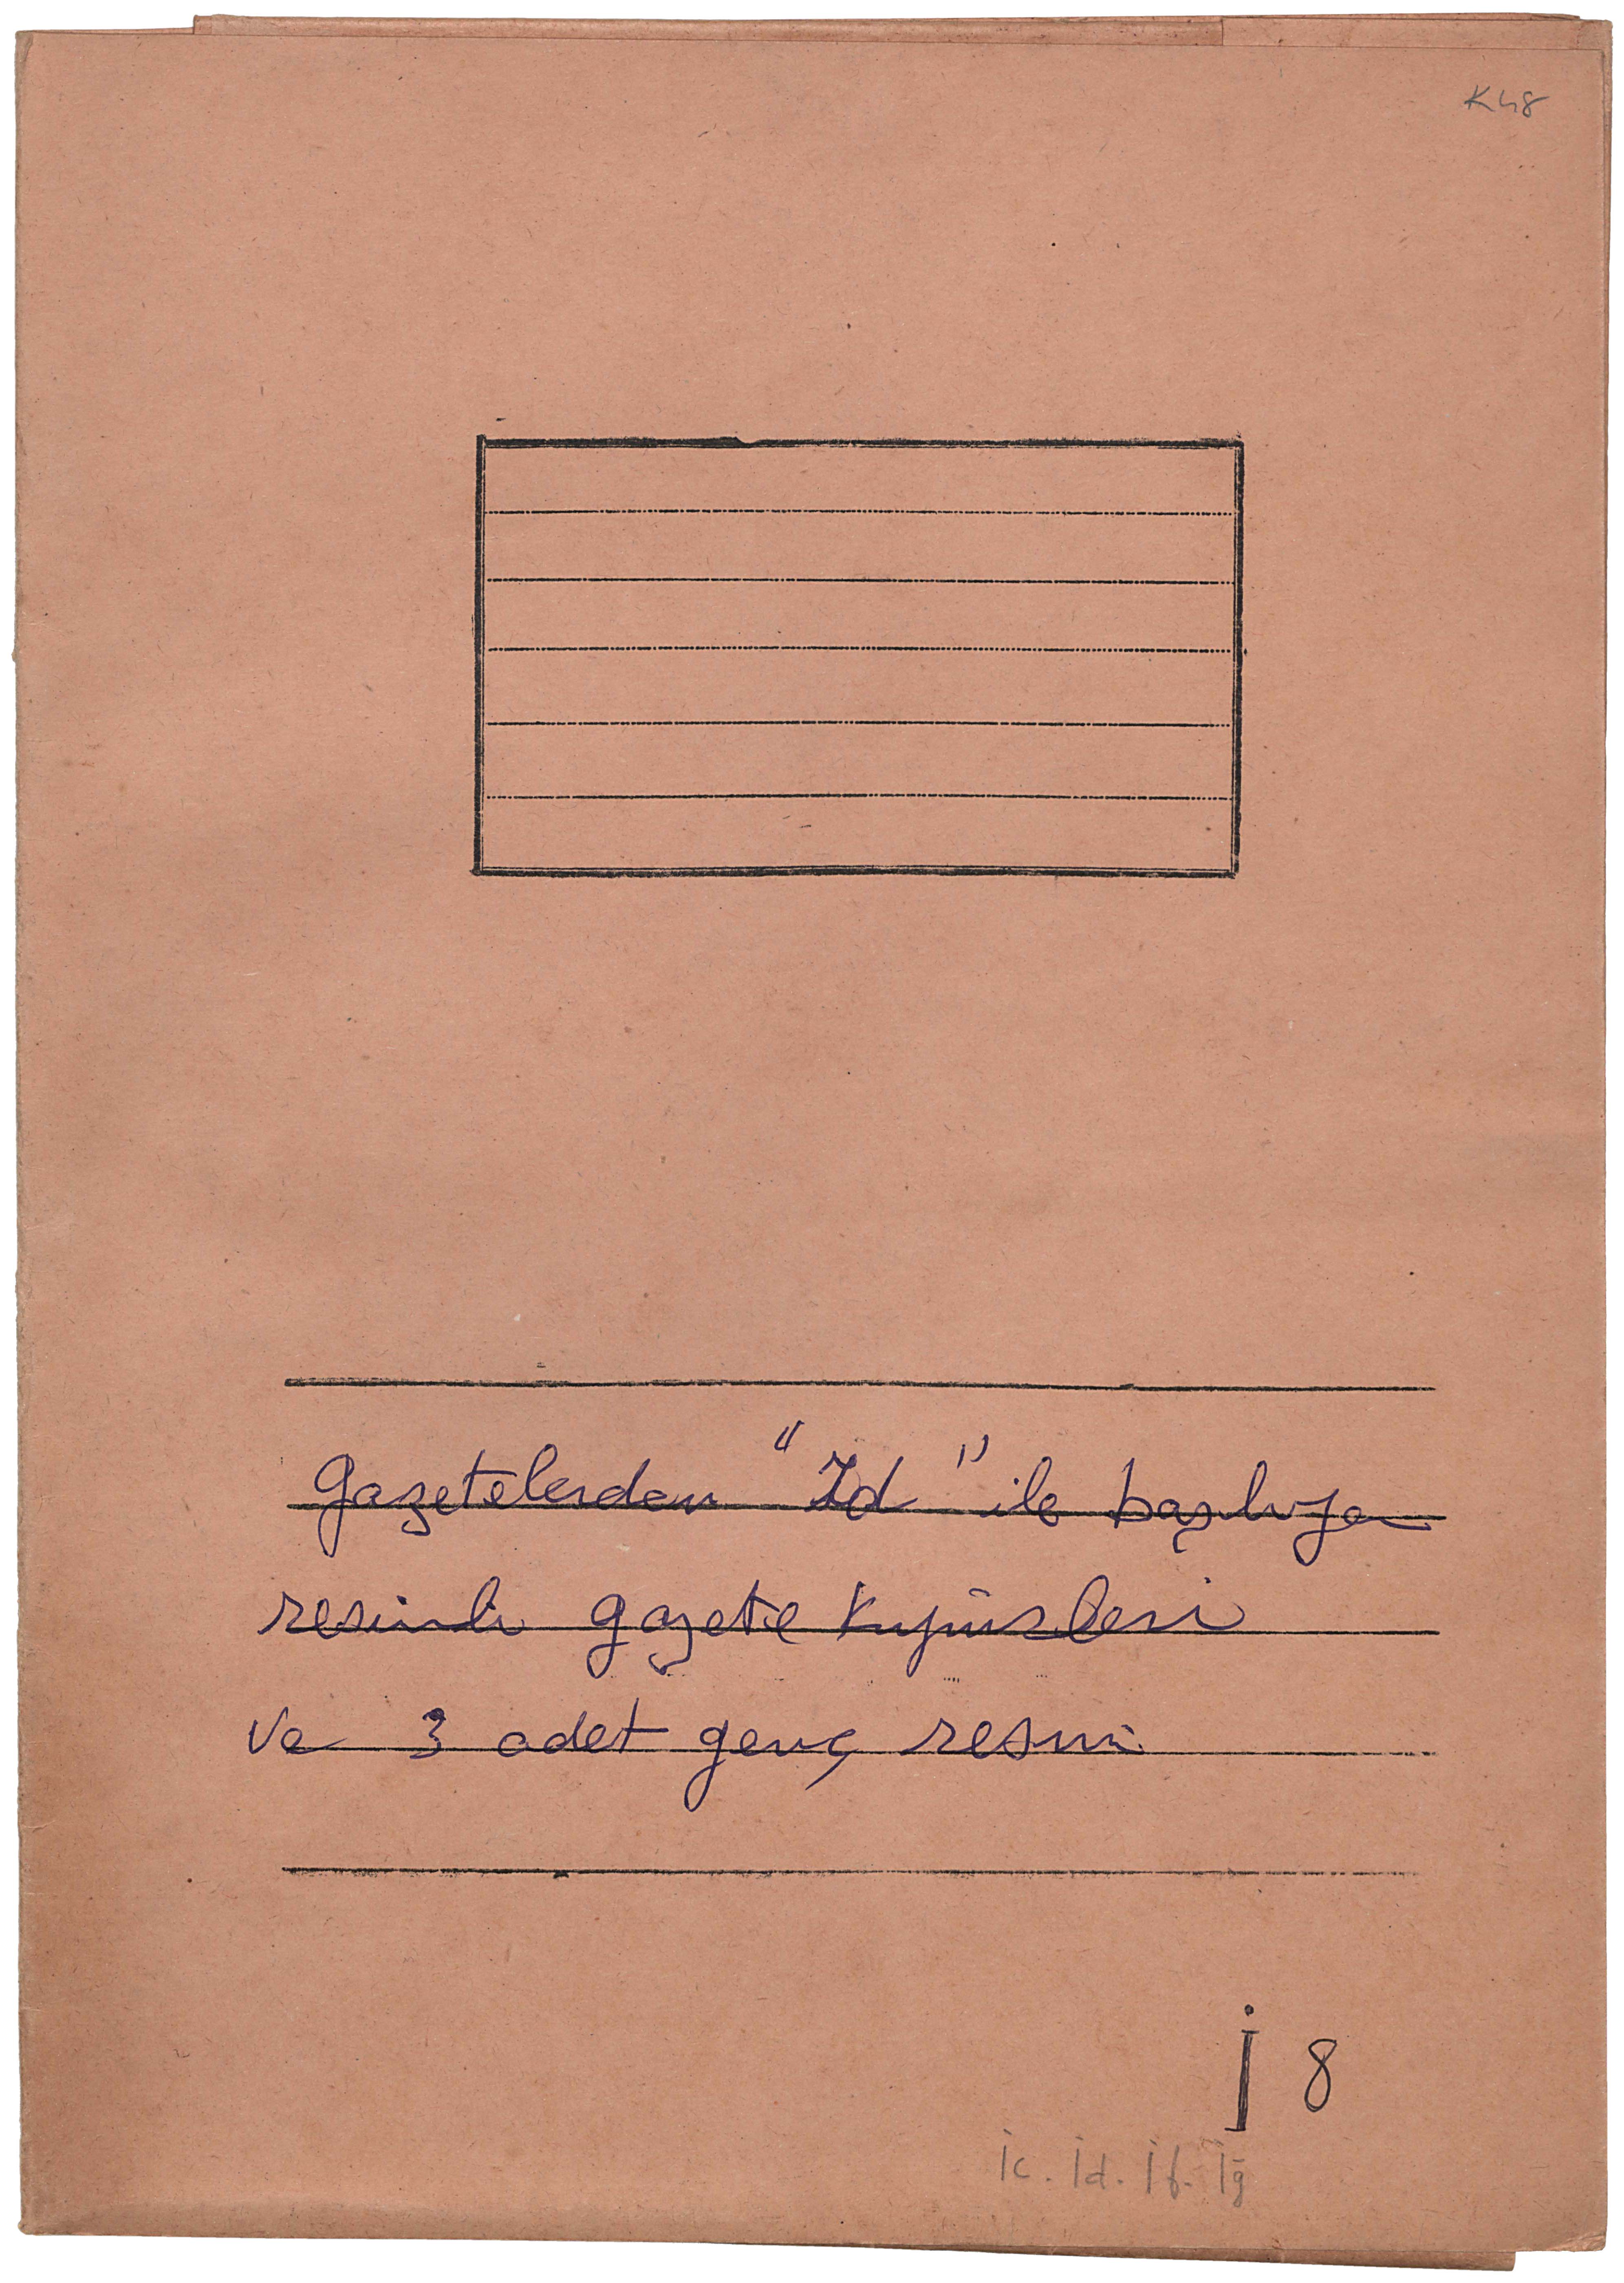 K48
Gazetelerden "İd" ile başlıyan
resimli gazete kupürleri
ve 3 adet genç resmi
İ 8
İc. İd. İf. İğ